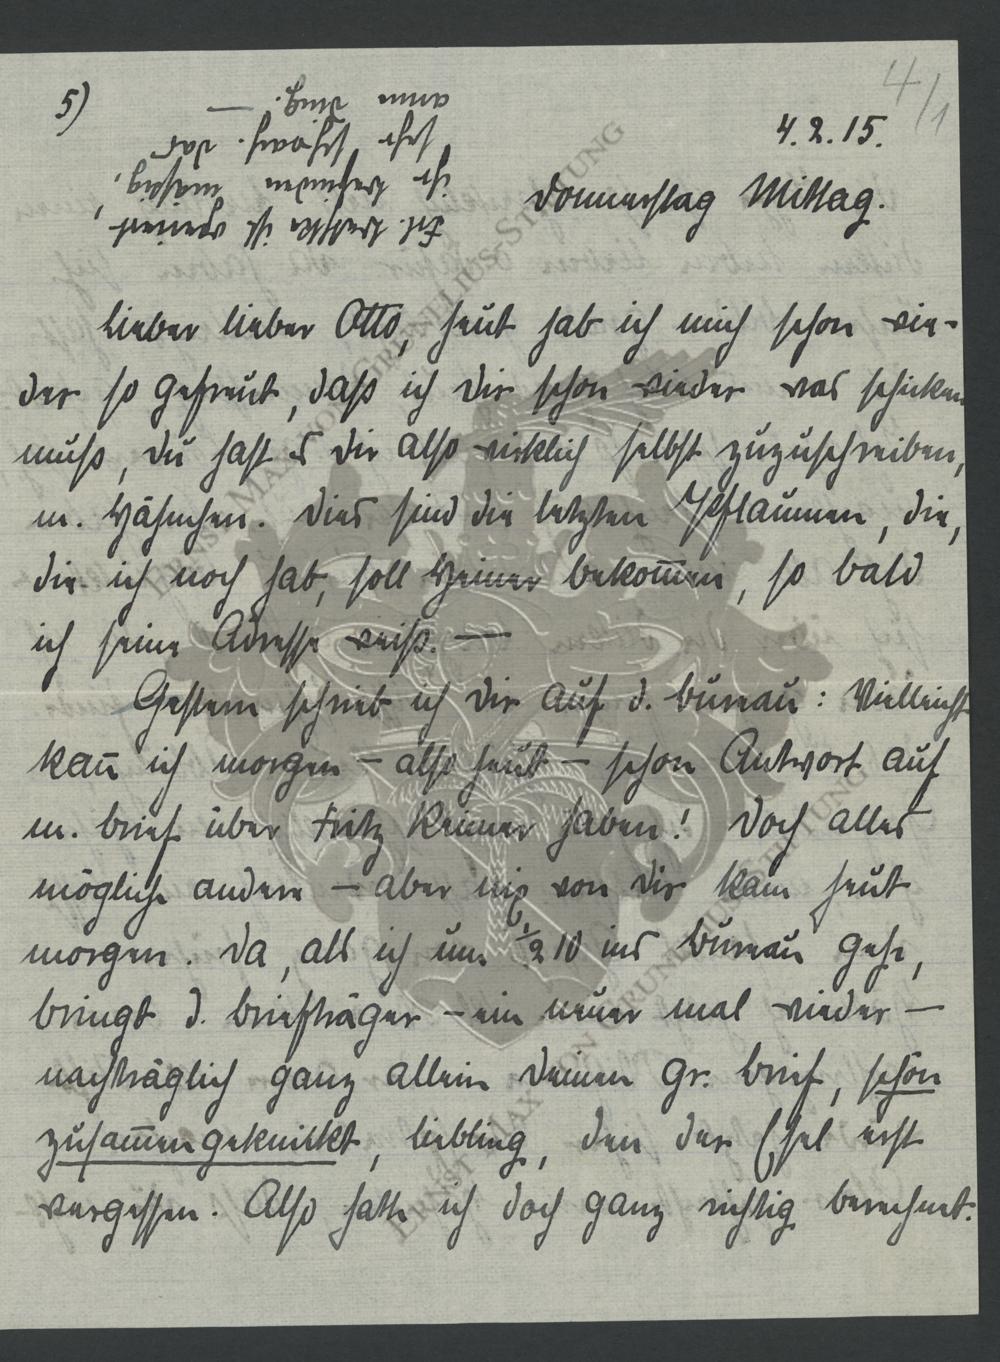 5)
4/1
4.2.15.
Donnerstag Mittag.
Frl. Westka ist operiert,
ihr Befinden mässig,
sehr schwach. das
arme Ding. —
Lieber lieber Otto, heut hab ich mich schon wie-
der so gefreut, daß ich Dir schon wieder was schicken
muß, Du hast es Dir also wirklich selbst zuzuschreiben,
m. Hähnchen. Dies sind die letzten Pflaumen, die,
die ich noch hab, soll Heiner bekom̅en, so bald
ich seine Adresse weiß. —
Gestern schrieb ich Dir auf d. Bureau: Vielleicht
kan̅ ich morgen – also heut – schon Antwort auf
m. Brief über Fritz Reimer haben! Doch alles
mögliche andere – aber nix von Dir kam heut
morgen. Da, als ich um ½ 10 ins Bureau gehe,
bringt d. Briefträger – ein neuer mal wieder –
nachträglich ganz allein Deinen gr. Brief, schön
zusam̅engeknickt, Liebling, den der Esel erst
vergessen. Also hatte ich doch ganz richtig berechnet.